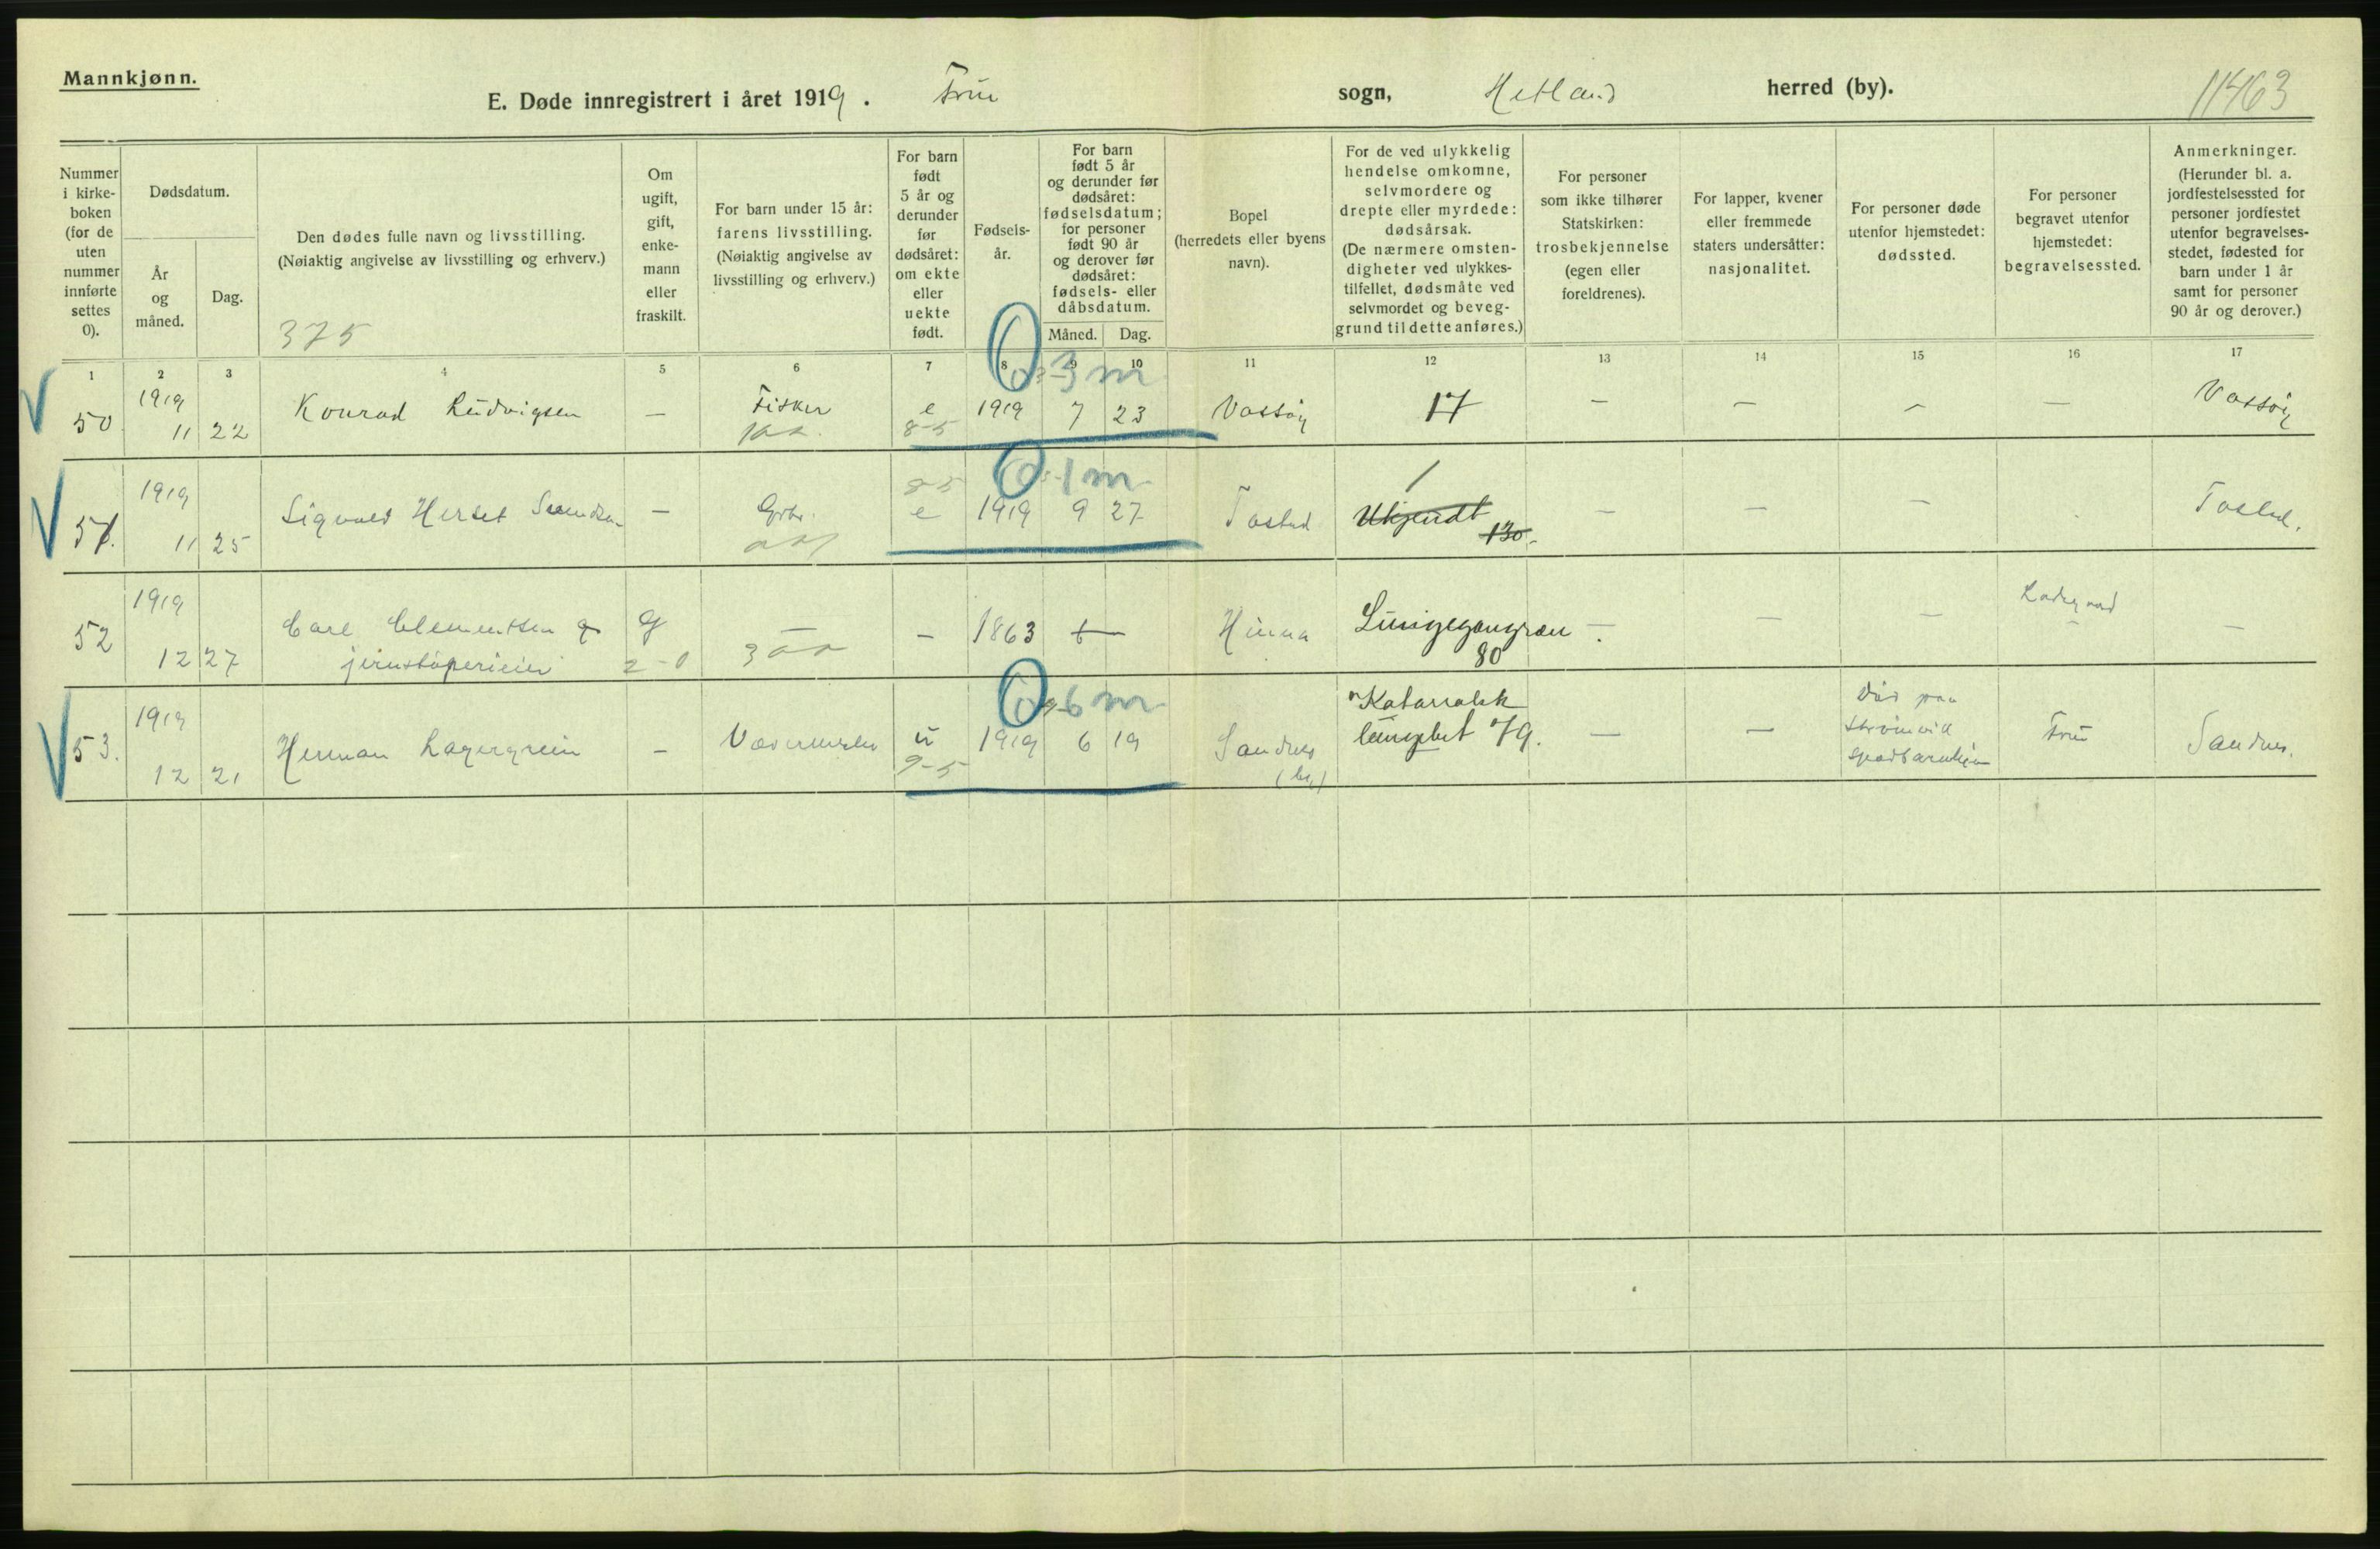 Mannkjønn.
E. Døde innregistrert i året 1919. Frue sogn, Hetland herred (by).
11463
Nummer i kirke-boken (for de uten nummer innførte settes 0).
Dødsdatum.
År og måned.
Dag.
Den dødes fulle navn og livsstilling.
(Nøiaktig angivelse av livsstilling og erhverv.)
375
Om ugift, gift, enke-mann eller fraskilt.
For barn under 15 år: farens livsstilling.
(Nøiaktig angivelse av livsstilling og erhverv.)
For barn født 5 år og derunder før dødsåret: om ekte eller uekte født.
Fødsels-år.
For barn født 5 år og derunder før dødsåret: fødselsdatum; for personer født 90 år og derover før dødsåret: fødsels- eller dåbsdatum.
Måned. Dag.
Bopel (herredets eller byens navn).
For de ved ulykkelig hendelse omkomne, selvmordere og drepte eller myrdede: dødsårsak.
(De nærmere omsten-digheter ved ulykkes-tilfellet, dødsmåte ved selvmordet og beveg-grund til dette anføres.)
For personer som ikke tilhører Statskirken: trosbekjennelse (egen eller foreldrenes).
For lapper, kvener eller fremmede staters undersåtter: nasjonalitet.
For personer døde utenfor hjemstedet: dødssted.
For personer begravet utenfor hjemstedet: begravelsessted.
Anmerkninger.
(Herunder bl. a. jordfestelsessted for personer jordfestet utenfor begravelses-stedet, fødested for barn under 1 år samt for personer 90 år og derover.)
1 2 3 4 5 6 7 8 9 10 11 12 13 14 15 16 17
0 3 m
50. 1919 11 22 Konrad Ludvigsen — Fisker e 8-5 1919 7 23 Vassøy 17 — — — — Vassøy
0 1 m
51. 1919 11 25 Sigvald Herset Svendsen — Grbr. 8-5 e 1919 9 27 Tasted 1 Ukjendt 130. — — — Tasted.
52 1919 12 27 Carl Clementsen
jernstøperieier G 2-0 — — 1863 Hinna Lungegangræn 80 — — — Ladegaard —
0 6 m
53. 1919 12 21 Herman Lagergrein — Vævermester u 9-5 1919 6 19 Sandnes (by) Katarralsk
lungebet. 79. — — Død paa
Strømvik
spædbarnhjem Frue Sandnes.